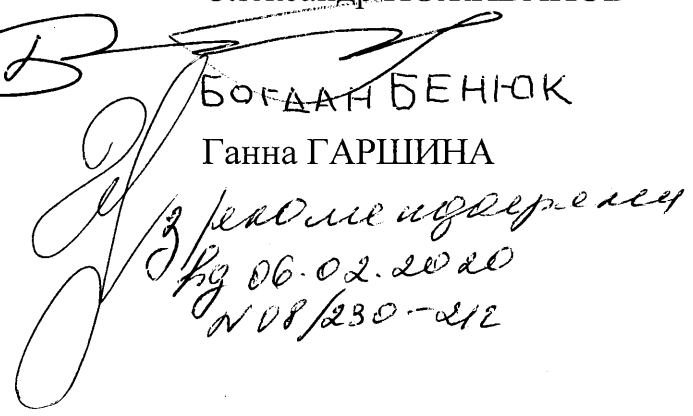 Олександр
БОГДАН БЕНЮК
Ганна ГАРШИНА
З рекомендаціями
від 06.02.2020
N 08/230-212